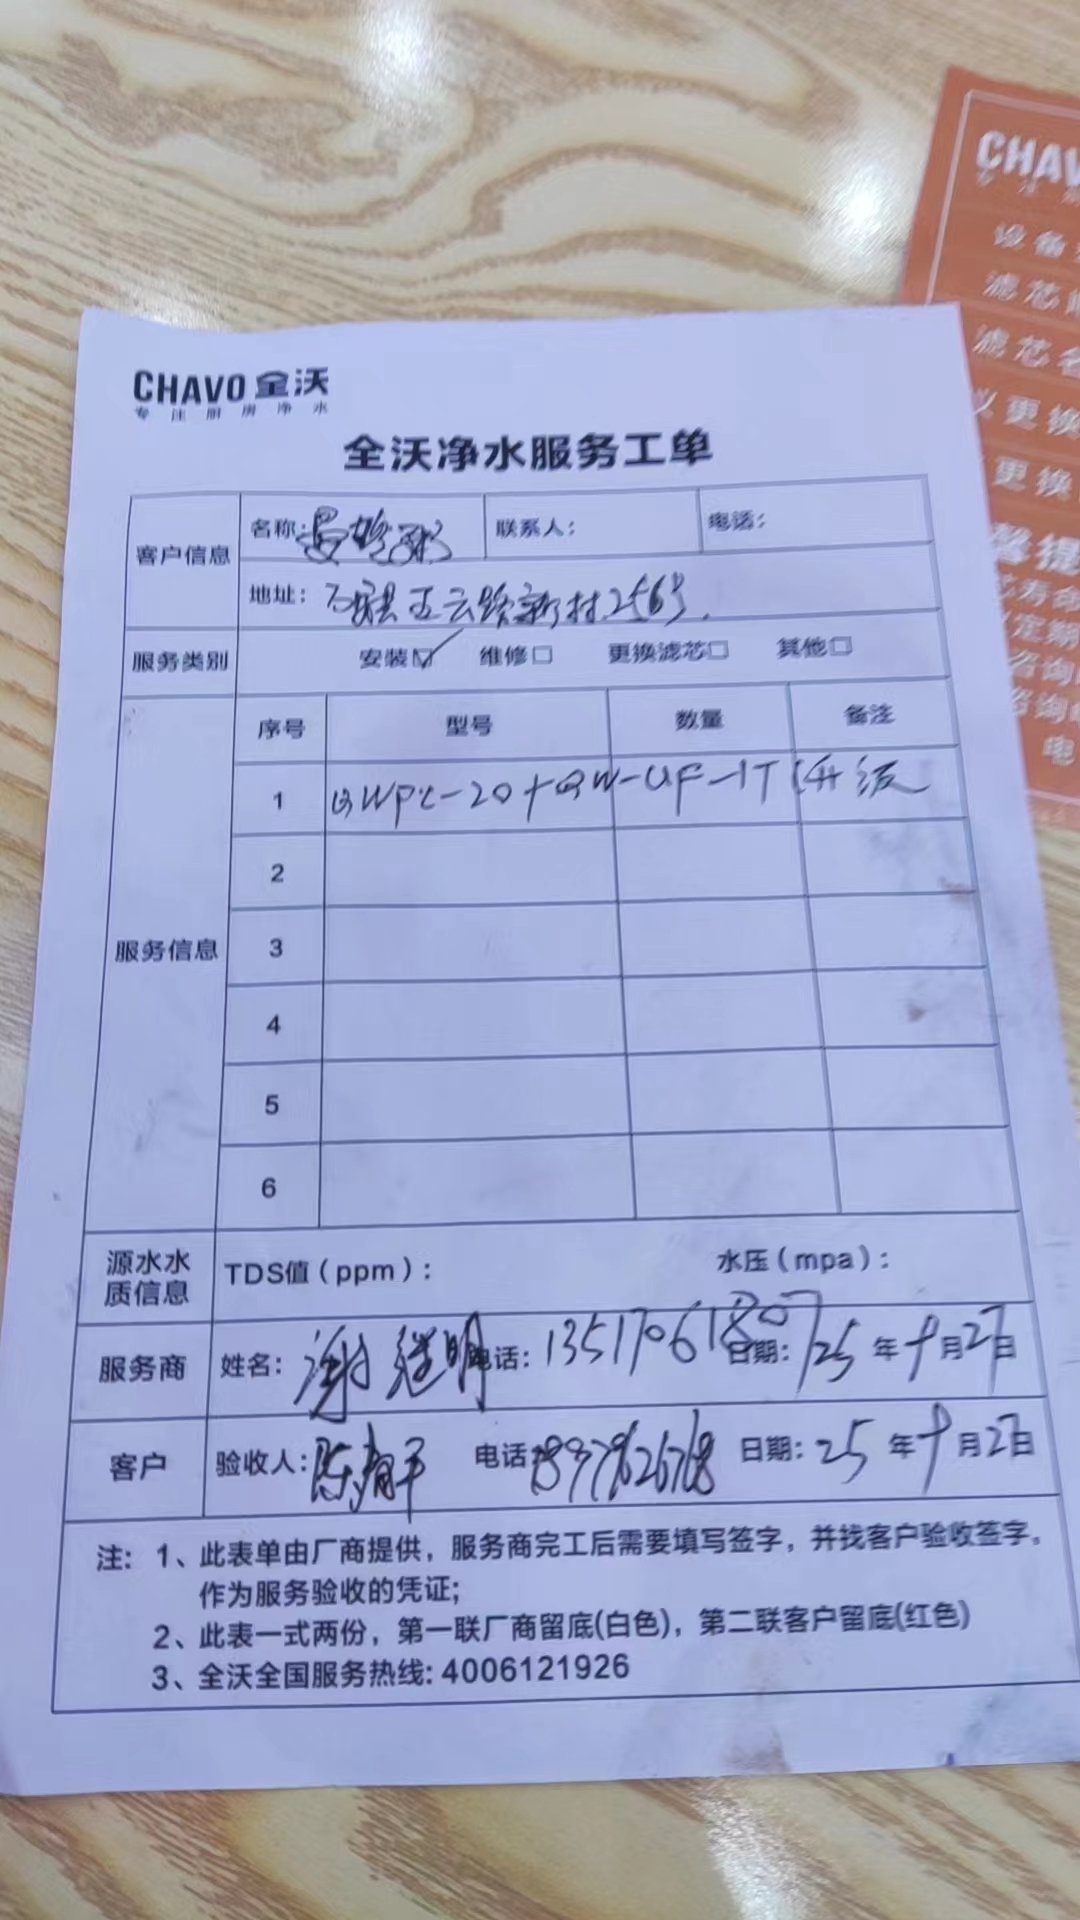 CHAVO 全沃
专注厨房净水
全沃净水服务工单
客户信息
名称:
联系人:
电话:
地址: 县五云路新村256号.
服务类别
安装☑ 维修□ 更换滤芯□ 其他□
服务信息
序号 型号 数量 备注
1 QWPC-20+QW-UF-1T 升级
2
3
4
5
6
源水水质信息
TDS值(ppm): 水压(mpa):
服务商 姓名: 谢继明 电话: 13517061807 日期: 25年9月27日
客户 验收人: 陈 平 电话: 日期: 25年9月27日
注: 1、此表单由厂商提供，服务商完工后需要填写签字，并找客户验收签字，
作为服务验收的凭证;
2、此表一式两份，第一联厂商留底(白色)，第二联客户留底(红色)
3、全沃全国服务热线: 4006121926
CHAV
设备
滤芯
滤芯名
更换
更换
馨提
芯寿命
定期
咨询
咨询
电